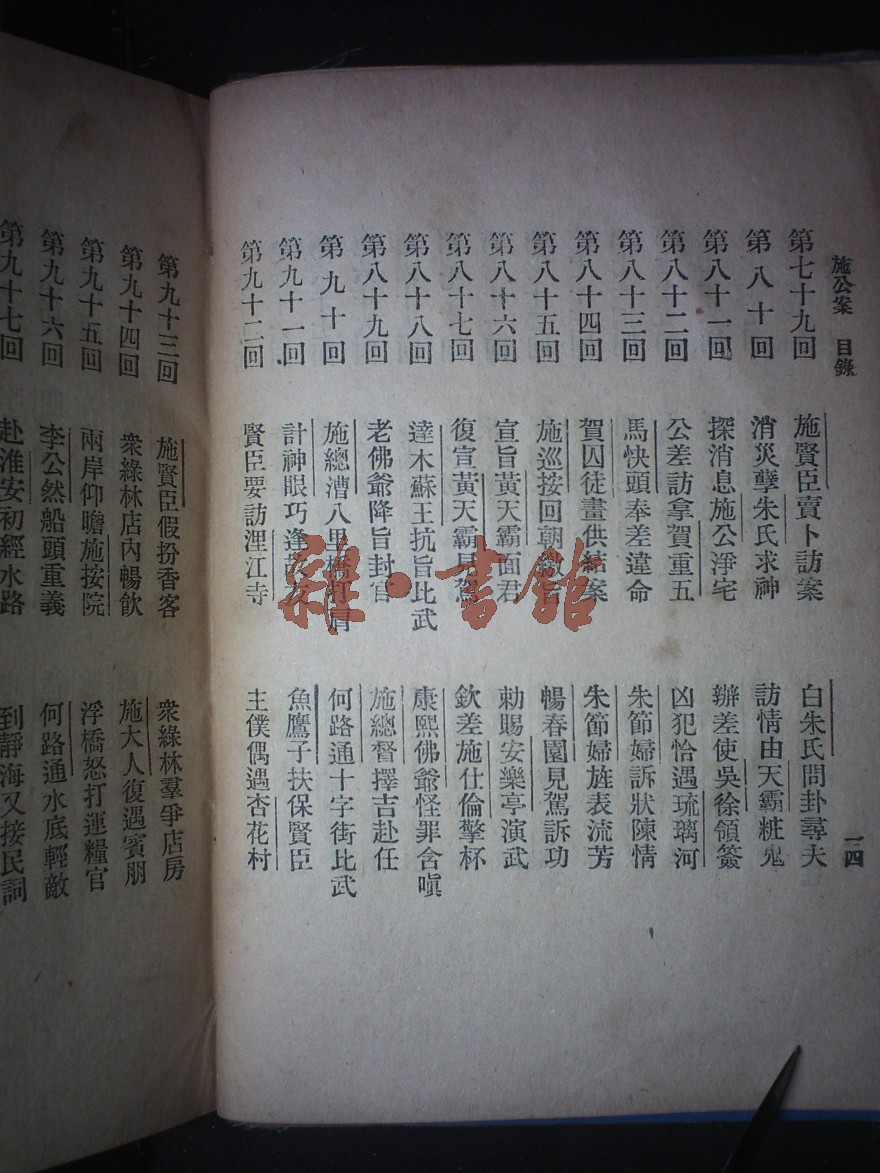 施公案 目錄 一四
第七十九回 施賢臣賣卜訪案 白朱氏問卦尋夫
第八十回 消災孽朱氏求神 訪情由天霸粧鬼
第八十一回 探消息施公淨宅 辦差使吳徐領簽
第八十二回 公差訪拿賀重五 凶犯恰遇琉璃河
第八十三回 馬快頭奉差違命 朱節婦訴狀陳情
第八十四回 賀囚徒畫供結案 朱節婦旌表流芳
第八十五回 施巡按回朝繳旨 暢春園見駕訴功
第八十六回 宣旨黃天霸面君 勅賜安樂亭演武
第八十七回 復宣黃天霸見駕 欽差施仕倫擎杯
第八十八回 達木蘇王抗旨比武 康熙佛爺怪罪含嗔
第八十九回 老佛爺降旨封官 施總督擇吉赴任
第九十回 施總漕八里橋 何路通十字街比武
第九十一回 計神眼巧逢 魚鷹子扶保賢臣
第九十二回 賢臣要訪浬江寺 主僕偶遇杏花村
第九十三回 施賢臣假扮香客 衆綠林羣爭店房
第九十四回 衆綠林店內暢飲 施大人復遇賓朋
第九十五回 兩岸仰瞻施按院 浮橋怒打運糧官
第九十六回 李公然船頭重義 何路通水底輕敵
第九十七回 赴淮安初經水路 到靜海又接民詞
雜·書館